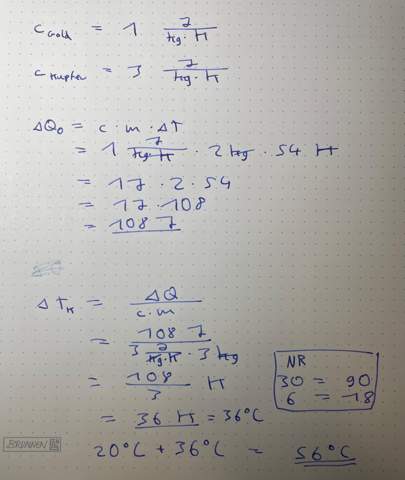 c Gold = 1 J / kg · K
c Kupfer = 3 J / kg · K
ΔQ₀ = c · m · ΔT
= 1 J / kg · K · 2 kg · 54 K
= 1 J · 2 · 54
= 1 J · 108
= 108 J
ΔT K = ΔQ / c · m
= 108 J / 3 J / kg · K · 3 kg
= 108 / 3 K
= 36 K = 36°C
20°C + 36°C = 56°C
NR
30 = 90
6 = 18
BRUNNEN